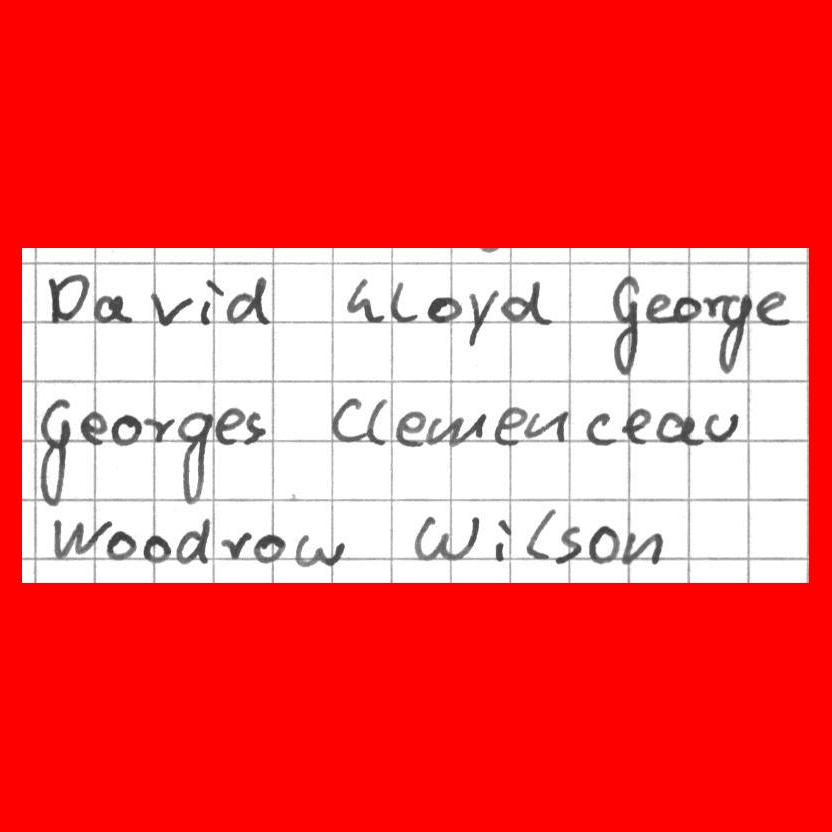 David Lloyd George
Georges Clemenceau
Woodrow Wilson